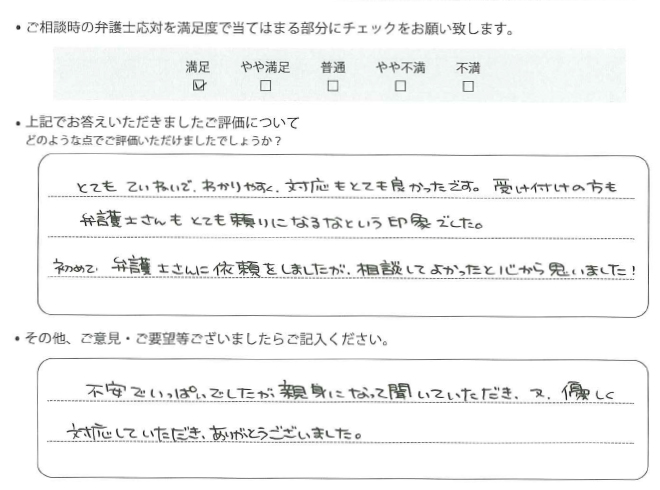 ・ご相談時の弁護士応対を満足度で当てはまる部分にチェックをお願い致します。
満足 やや満足 普通 やや不満 不満
☑ □ □ □ □
・上記でお答えいただきましたご評価について
どのような点でご評価いただけましたでしょうか？
とても ていねいで、わかりやすく、対応もとても良かったです。受け付けの方も
弁護士さんも とても頼りになるなという印象でした。
初めて、弁護士さんに依頼をしましたが、相談してよかったと心から思いました！
・その他、ご意見・ご要望等ございましたらご記入ください。
不安でいっぱいでしたが親身になって聞いていただき、又、優しく
対応していただき、ありがとうございました。